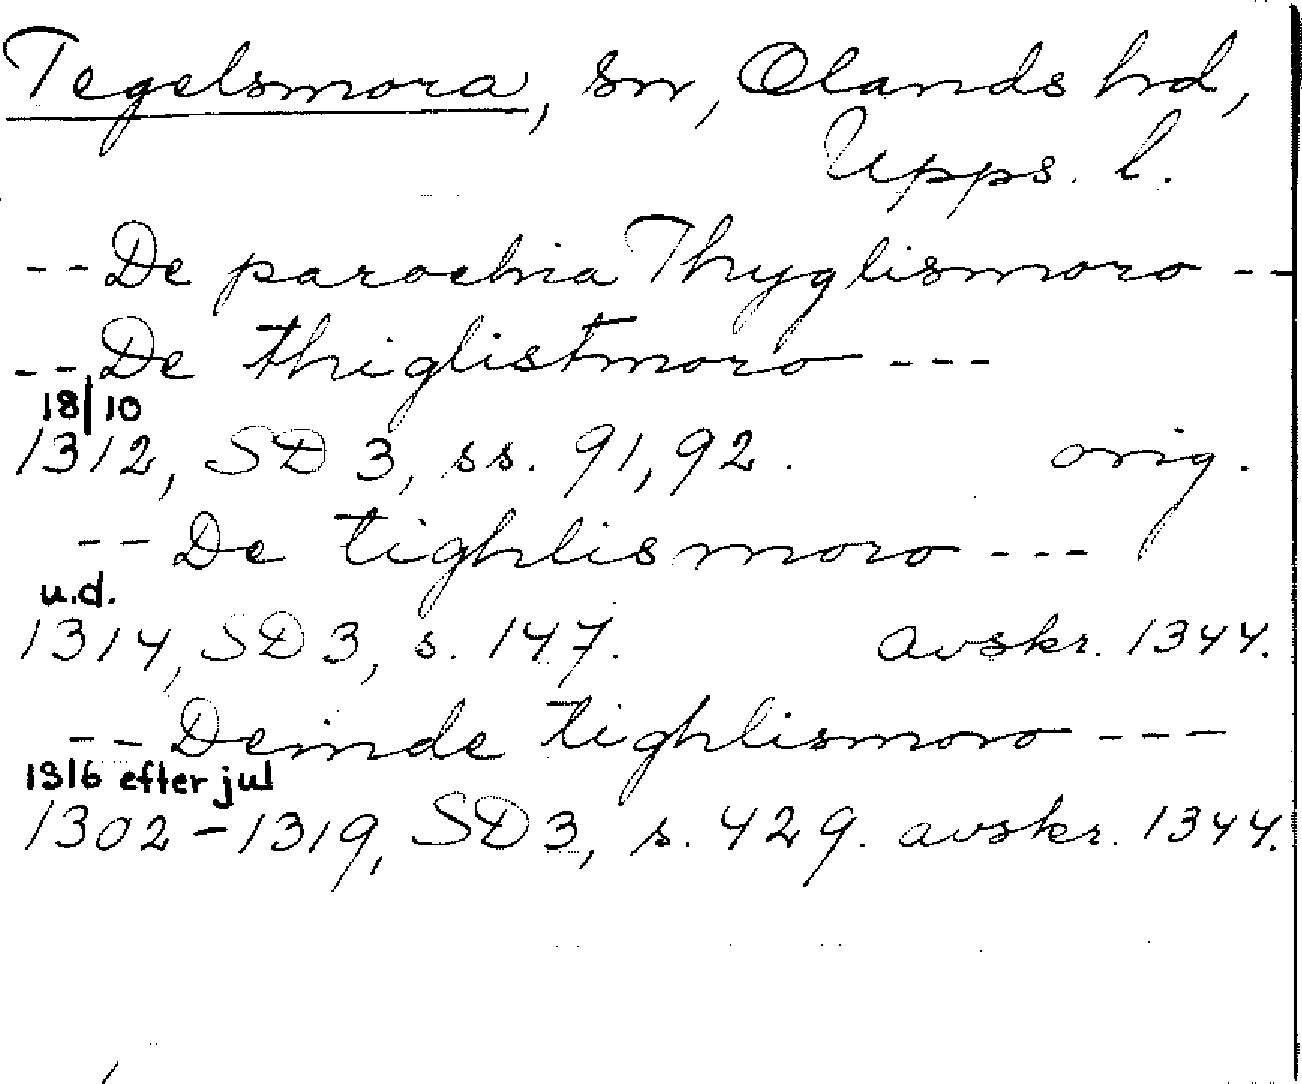 Tegelsmora, sn, Olands hd,
Upps. l.
-- De parochia Thyglismoro --
-- De thiglistmoro ---
18/10
1312, SD 3, ss. 91, 92. orig.
-- De tighlismoro ---
u.d.
1314, SD 3, s. 147. avskr. 1344.
-- Deinde tighlismoro ---
1316 efter jul
1302-1319, SD 3, s. 429. avskr. 1344.